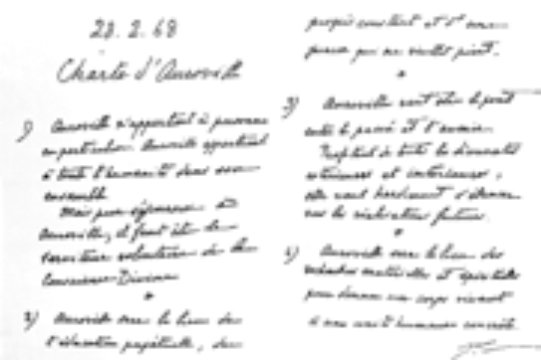 28.2.68
Charte d'Auroville
1) Auroville n'appartient à personne
en particulier. Auroville appartient
à toute l'humanité dans son
ensemble.
Mais pour séjourner à
Auroville, il faut être le
serviteur volontaire de la
Conscience Divine.
*
2) Auroville sera le lieu de
l'éducation perpétuelle, du
progrès constant et d'une
jeunesse qui ne vieillit point.
*
3) Auroville veut être le pont
entre le passé et l'avenir.
Profitant de toutes les découvertes
extérieures et intérieures,
elle veut hardiment s'élancer
vers les réalisations futures.
*
4) Auroville sera le lieu des
recherches matérielles et spirituelles
pour donner un corps vivant
à une unité humaine concrète.